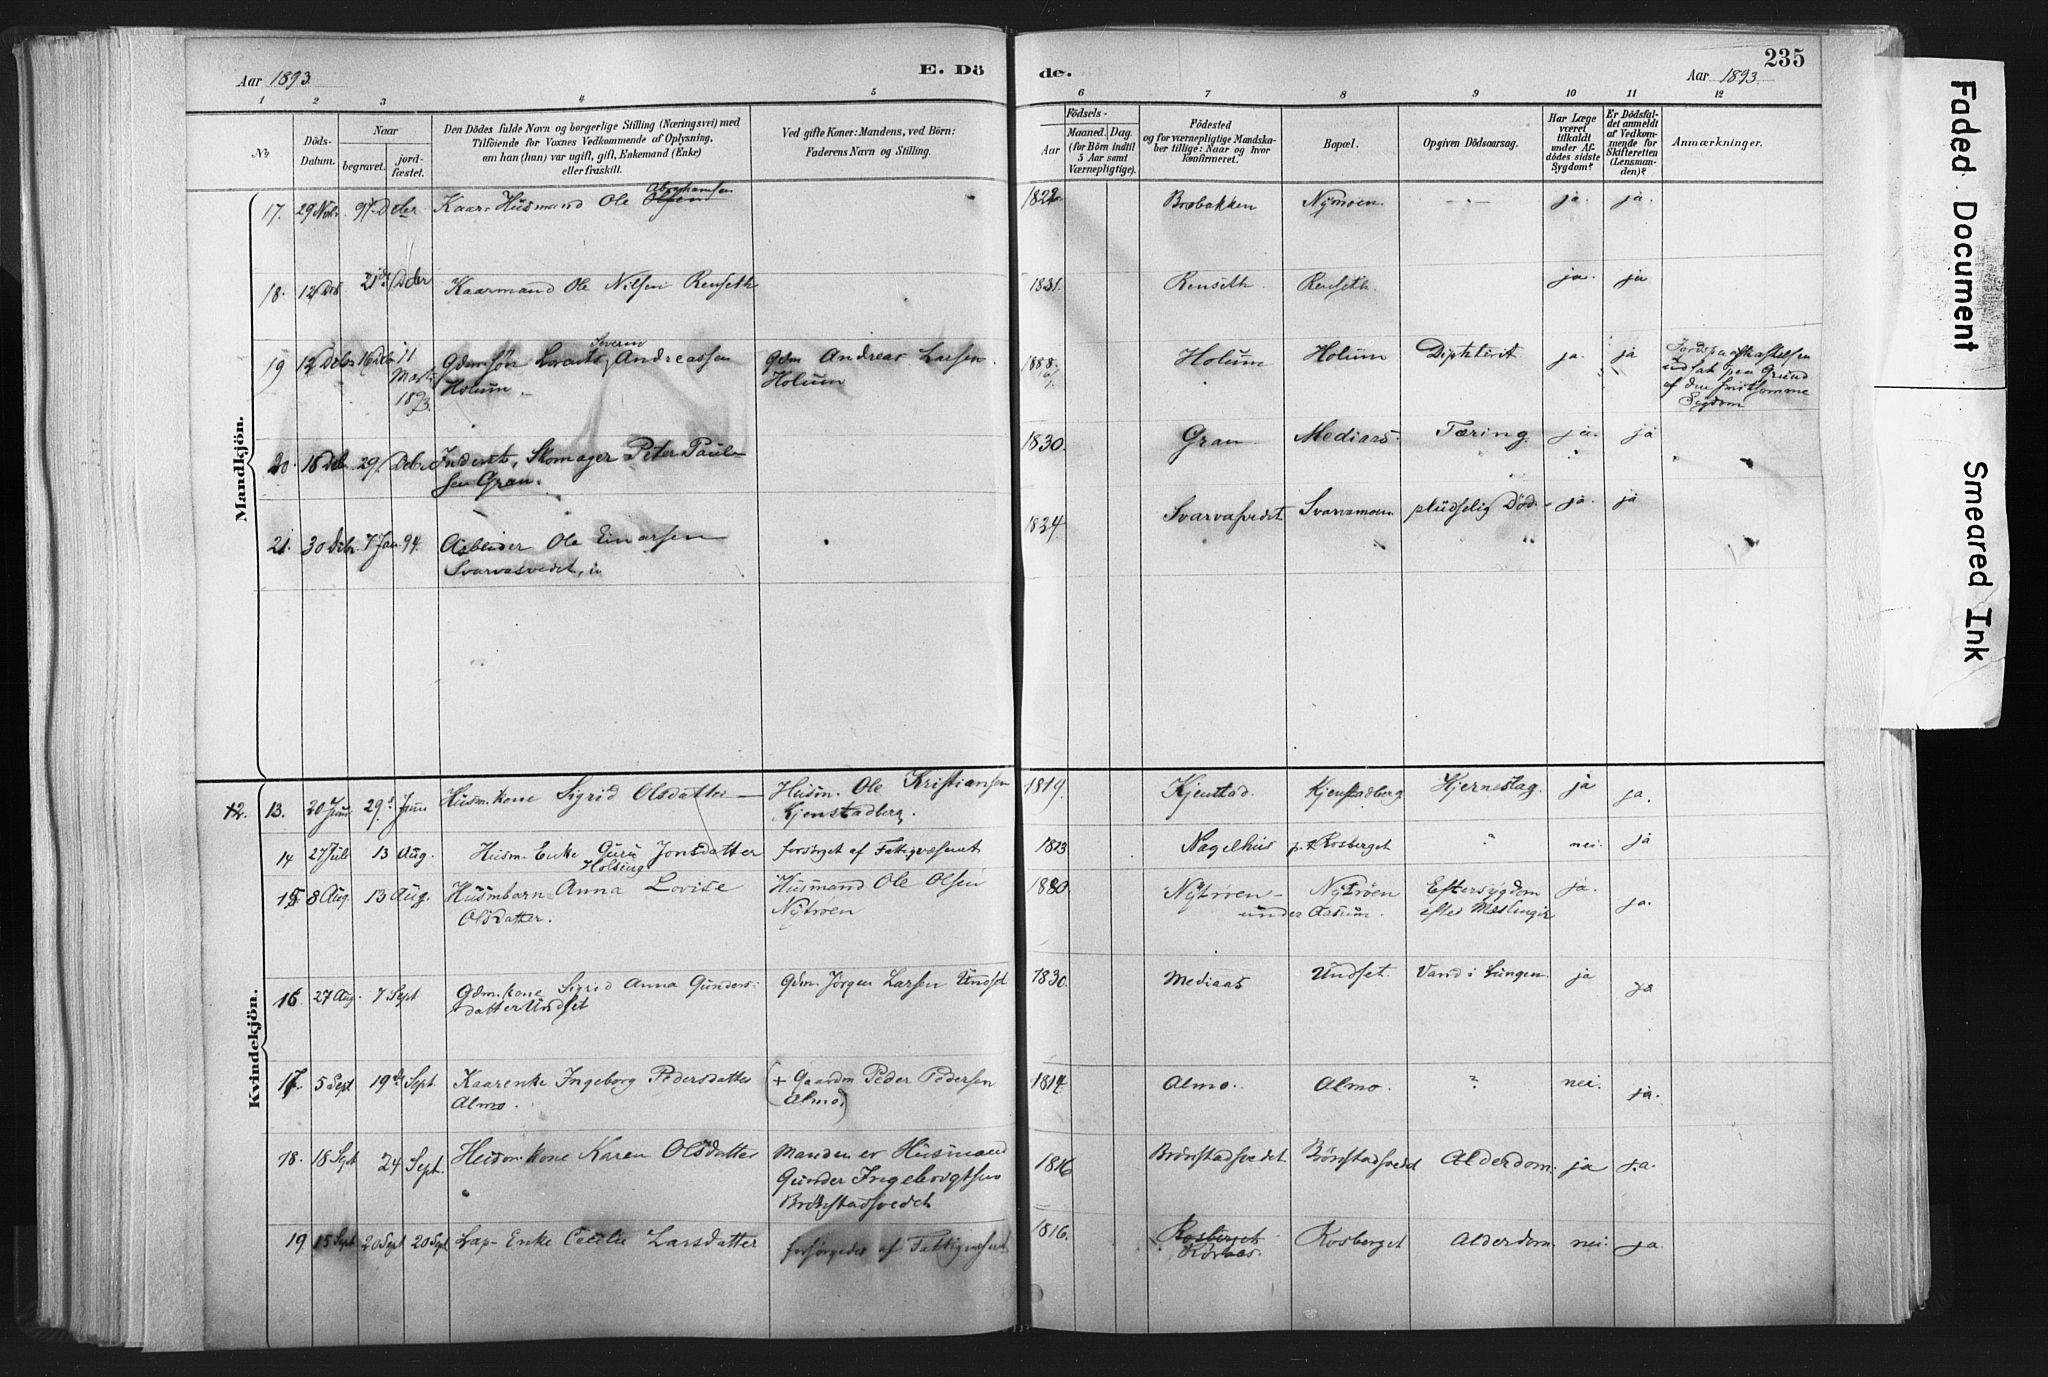 235
Aar 1893. E. Dö de. Aar 1893.
1 2 3 4 5 6 7 8 9 10 11 12
No.
Döds-Datum.
Naar
begravet. jord-fæstet.
Den Dödes fulde Navn og borgerlige Stilling (Næringsvei) med
Tilföiende for Voxnes Vedkommende af Oplysning,
om han (hun) var ugift, gift, Enkemand (Enke)
eller fraskilt.
Ved gifte Koner: Mandens, ved Börn:
Faderens Navn og Stilling.
Födsels-
Aar
Maaned. Dag.
(for Börn indtil
5 Aar samt
Værnepligtige).
Födested
og for værnepligtige Mandska-
ber tillige: Naar og hvor
konfirmeret.
Bopæl.
Opgiven Dödsaarsag.
Har Læge
været
tilkaldt
under Af-
dödes sidste
Sygdom?
Er Dödsfal-
det anmeldt
af Vedkom-
mende for
Skifteretten
(Lensman-
den)?
Anmærkninger.
Mandkjön.
Abrahamsen
17. 29 Nov. 9 Dcbr Kaar-Husmand Ole Olsen 1822 Brobakken Nÿmoen. — ja. ja.
18. 12 Dcb 21de Dcbr Kaarmand Ole Nilsen Renseth 1831. Renseth. Renseth. ja. ja
Severin
19 12 Dcbr 16 Dcbr 11 Gdmsön Andreassen Gdm Andreas Larsen 1888 Holum Holum Diphterit ja. ja
Mart. Holum. Holum
1893.
udsat paa Grund
af den smitsomme
Sygdom
20. 16 Dcb. 29. Dcbr Inderst, Skomager Peter Paul- 1830. Gran. Mediaas. Tæring ja. ja
sen Gran.
21. 30 Dcbr. 7 Jan 94. Arbeider Ole Einarsen 1834. Svarvasvedet Svarvamoen pludselig Död. ja. ja
Svarvasvedet,
Kvindekjön.
12. 13. 20 Juni 29. Juni Husm.kone Sigrid Olsdatter — Husm. Ole Kristiansen 1819. Kjenstad. Kjenstadberg Hjerneslag. ja ja.
Kjenstadberg.
14 27 Juli 13 Aug. Husm. Enke Guru Jonsdatter forsörget af Fattigvæsenet 1813 Nagelhus p. Rosberget " nei. ja
15 8 Aug. 13 Aug. Husmbarn Anna Lovise Husmand Ole Olsen 1880. Nÿtröen — Nÿtröen Eftersÿgdom ja. ja.
Olsdatter. Nÿtröen under Aasum. efter Mæslinger
16. 27 Aug. 7 Sept Gdm.kone Sigrid Anna Gunders- Gdm. Jörgen Larsen Undset 1830. Mediaas Undset. Vand i Lungen. ja ja
datter Undset
17. 5 Sept 19de Sept. Kaarenke Ingeborg Pedersdatter (+ Gaardm Peder Pedersen 1814. Almo. Almo. ? nei. ja.
Almo. Almo.)
18. 18 Sept 24 Sept. Husm.kone Karen Olsdatter Manden er Husmand 1816 Brönstadsvedet Brönstadsvedet Alderdom. ja ja.
Gunder Ingebrigtsen
Brönstadsvedet
19. 15 Sept. 20 Sept 20 Sept Lap-Enke Cecilie Larsdatter forsörgedes af Fattigvæsenet 1816. Rosberget Rosberget Alderdom. nei. ja.
Röraas.
Faded Document
Smeared Ink